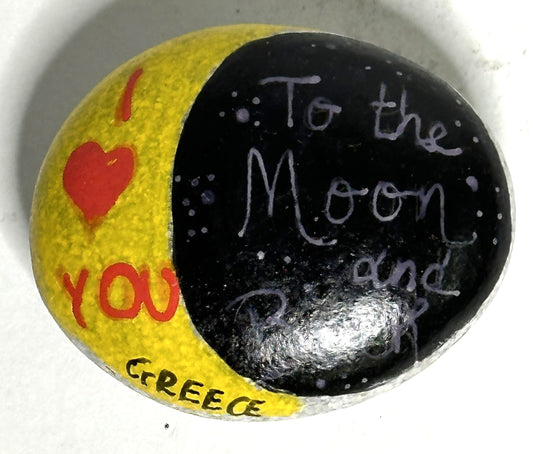 I
❤
YOU
GREECE
To the
Moon
and
Back